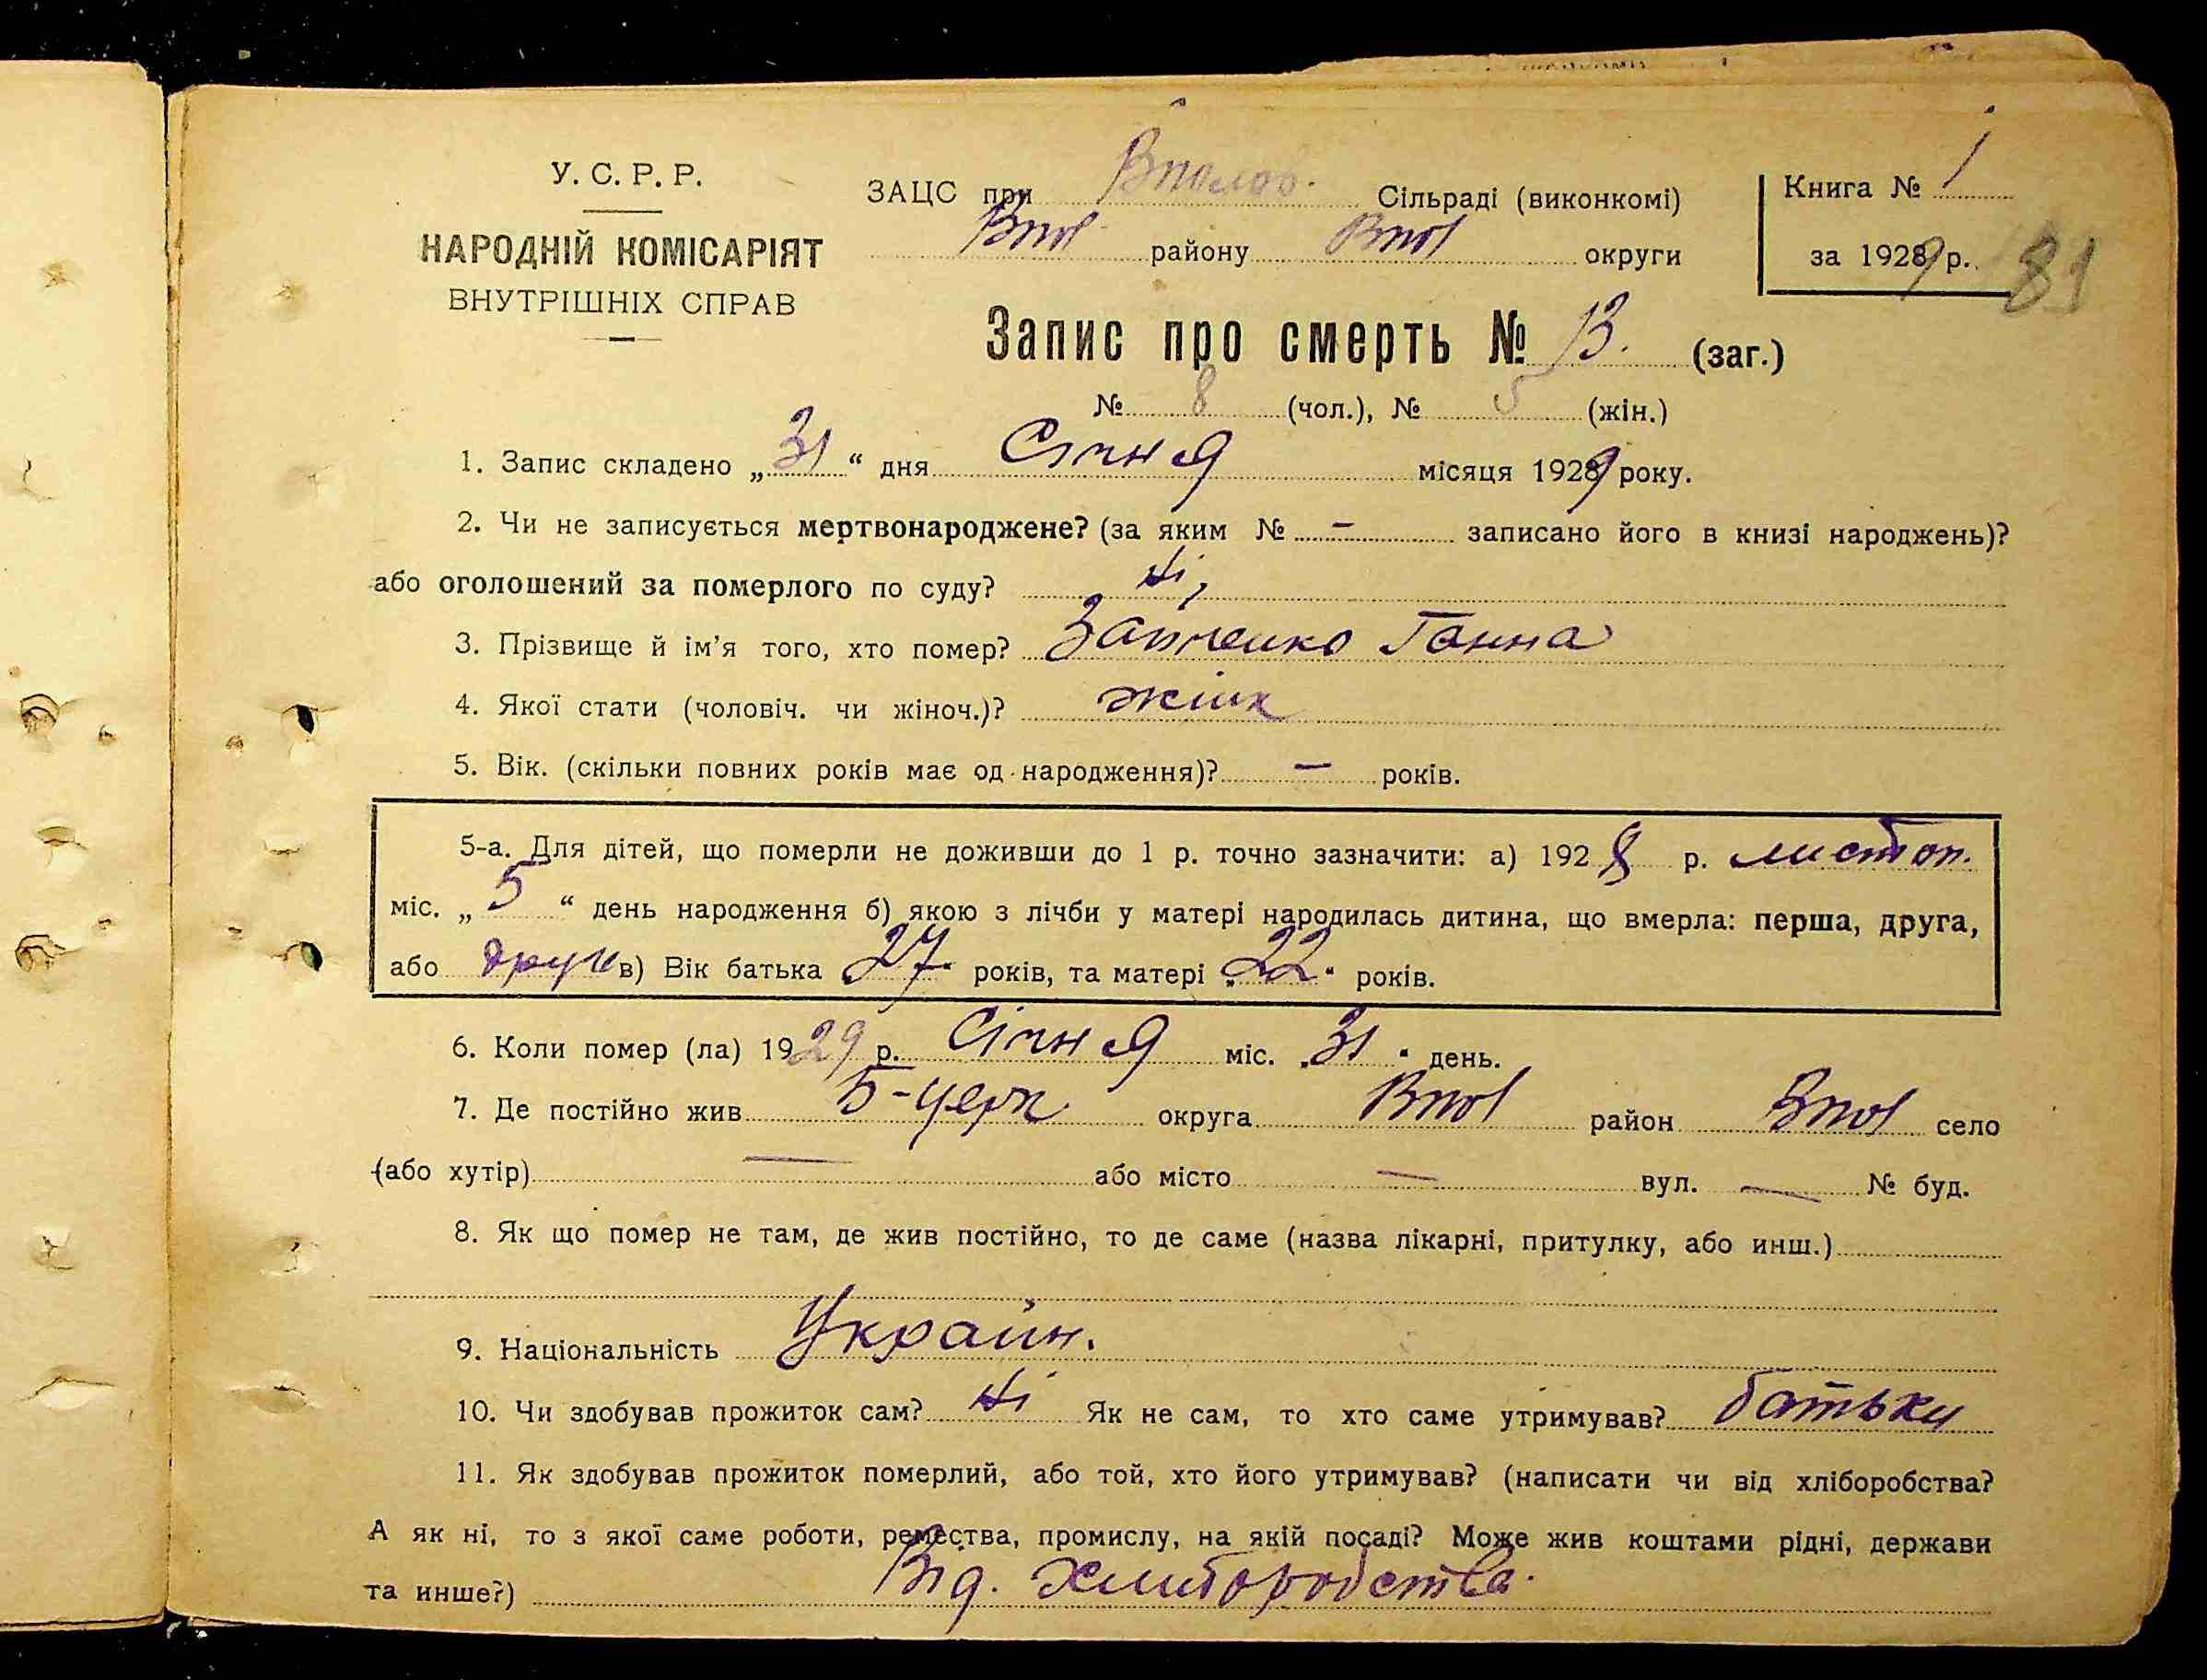 У. С. Р. Р.
НАРОДНІЙ КОМІСАРІЯТ
ВНУТРІШНІХ СПРАВ
ЗАЦС при Вполов. Сільраді (виконкомі)
району округи
Книга № 1
за 1929 р. 81
Запис про смерть № 13. (заг.)
№ 8 (чол.), № 5 (жін.)
1. Запис складено „31“ дня Січня місяця 1929 року.
2. Чи не записується мертвонароджене? (за яким № — записано його в книзі народжень)?
або оголошений за померлого по суду? Ні,
3. Прізвище й ім'я того, хто помер? Ганна
4. Якої стати (чоловіч. чи жіноч.)? жінк
5. Вік. (скільки повних років має од народження)? — років.
5-а. Для дітей, що померли не доживши до 1 р. точно зазначити: а) 1928 р. листоп.
міс. „5“ день народження б) якою з лічби у матері народилась дитина, що вмерла: перша, друга,
або друга в) Вік батька „27“ років, та матері „22“ років.
6. Коли помер (ла) 1929 р. Січня міс. „31“ день.
7. Де постійно жив Б-церк округа район село
(або хутір) — або місто — вул. — № буд.
8. Як що помер не там, де жив постійно, то де саме (назва лікарні, притулку, або инш.)
9. Національність Україн.
10. Чи здобував прожиток сам? Ні Як не сам, то хто саме утримував? батьки
11. Як здобував прожиток померлий, або той, хто його утримував? (написати чи від хліборобства?
А як ні, то з якої саме роботи, ремества, промислу, на якій посаді? Може жив коштами рідні, держави
та инше?) Від. хлиборобства.